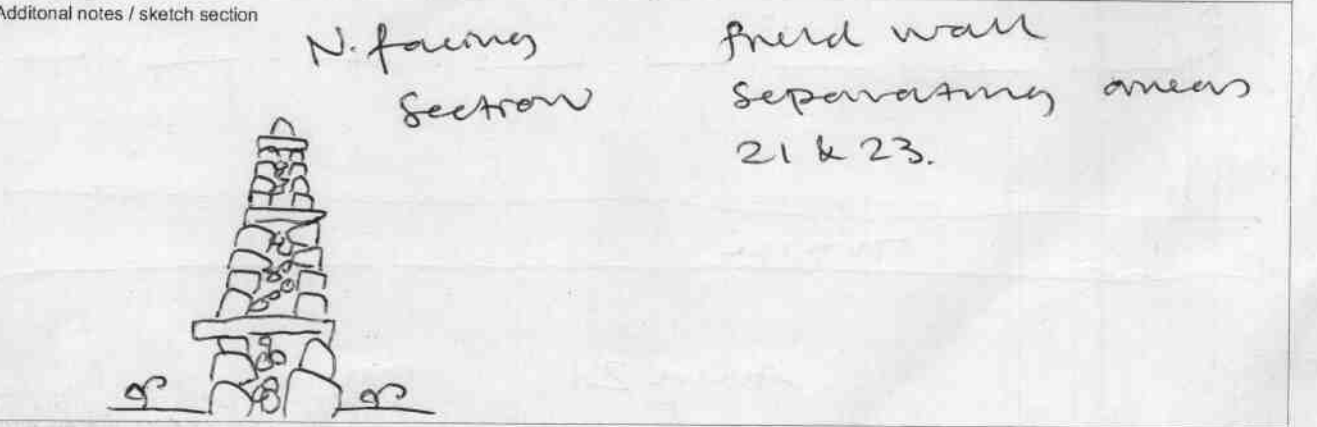 Additonal notes / sketch section
N. facing
Section
field wall
separating areas
21 & 23.